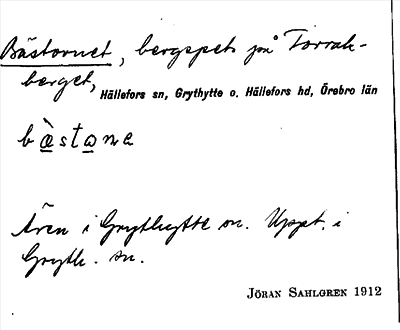 Bästornet, bergspets på Torrak-
berget,
Hällefors sn, Grythytte o. Hällefors hd, Örebro län
bàstone
Även i Grythytte sn. Uppt. i
Gryth. sn.
Jöran Sahlgren 1912